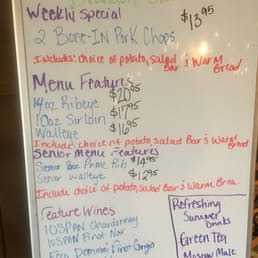 Weekly Special
$13.95
2 Bone-In Pork Chops
Includes: choice of potato, salad
Bar & Warm
Bread
Menu Features
14oz Ribeye $20.95
10oz Sirloin $17.95
Walleye $16.95
Include choice of potato, Salad Bar & Warm
Bread
Senior Menu Features
Senior 8oz Prime Rib $14.95
Senior Walleye $12.95
Include choice of potato, Salad Bar & Warm Brea
Feature Wines
10SPAN Chardonnay
10SPAN Pinot Nor
Pinot Grigio
Refreshing
Summer
Drinks
Green Tea
Moscow Mule